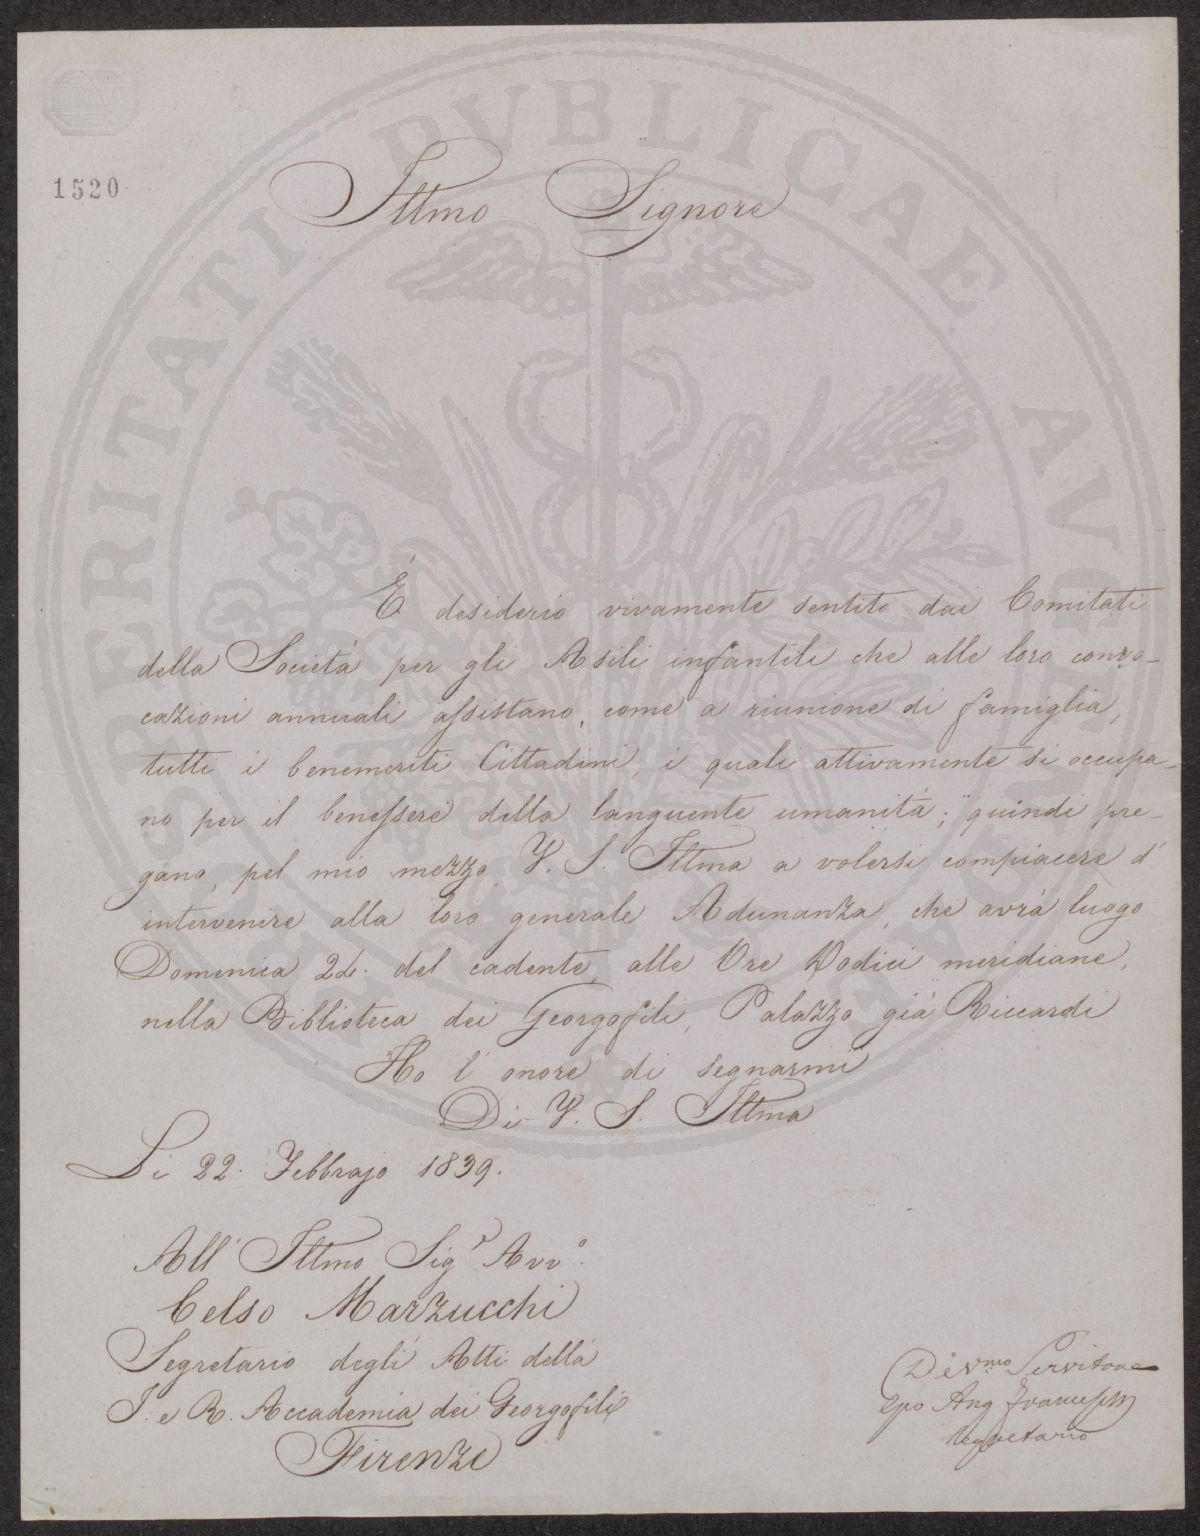 PROSPERITATI PVBLICAE AVGENDAE
1520
Illmo Signore
È desiderio vivamente sentito dai Comitati
della Società per gli Asili infantili che alle loro convo-
cazioni annuali assistano, come a riunione di famiglia,
tutti i benemeriti Cittadini, i quali attivamente si occupa-
no per il benessere della languente umanità; quindi pre-
gano, pel mio mezzo, V. S. Illma a volersi compiacere d'
intervenire alla loro generale Adunanza, che avrà luogo
Domenica 24. del cadente, alle Ore Dodici meridiane,
nella Biblioteca dei Georgofili, Palazzo già Riccardi
Ho l'onore di segnarmi
Di V. S. Illma
Li 22. Febbrajo 1839.
All'Illmo Sigr Avvo.
Celso Marzucchi
Segretario degli Atti della
I. e R. Accademia dei Georgofili
Firenze
Devmo Servitore
Ang
Segretario